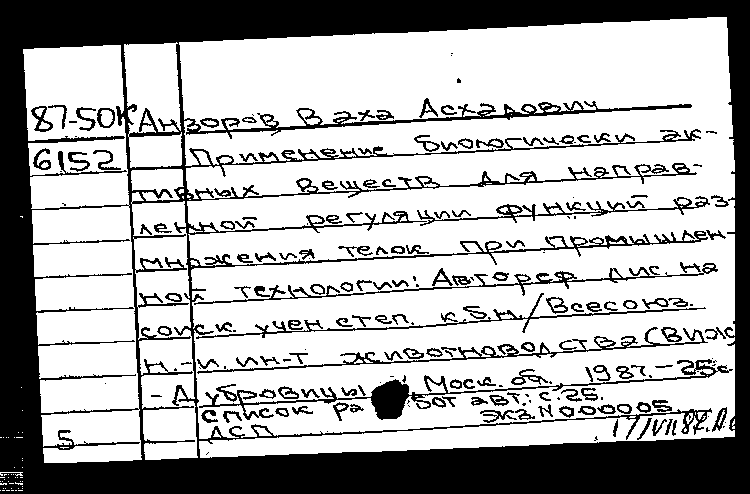 87-50К Анзоров Ваха Асхадович
6152 Применение биологически ак-
тивных веществ для направ-
ленной регуляции функций раз-
множения телок при промышлен-
ной технологии: Автореф дис. на
соиск. учен. степ. к.б.н./Всесоюз.
н.-и. ин-т животноводства (ВИЖ)
- Дубровицы Моск. обл., 1987. - 25с
список работ авт.: с. 25.
ДСП экз. N 000005.
5 17/VII 87.